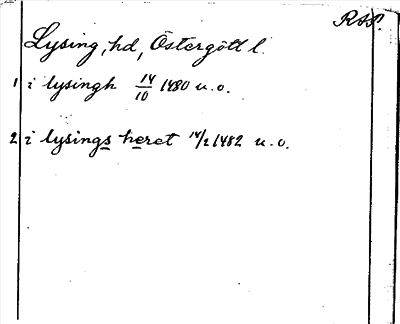 RAP.
Lysing, hd, Östergötl l.
1 i lysingh 14/10 1480 u.o.
2 i lysings heret 14/2 1482 u.o.